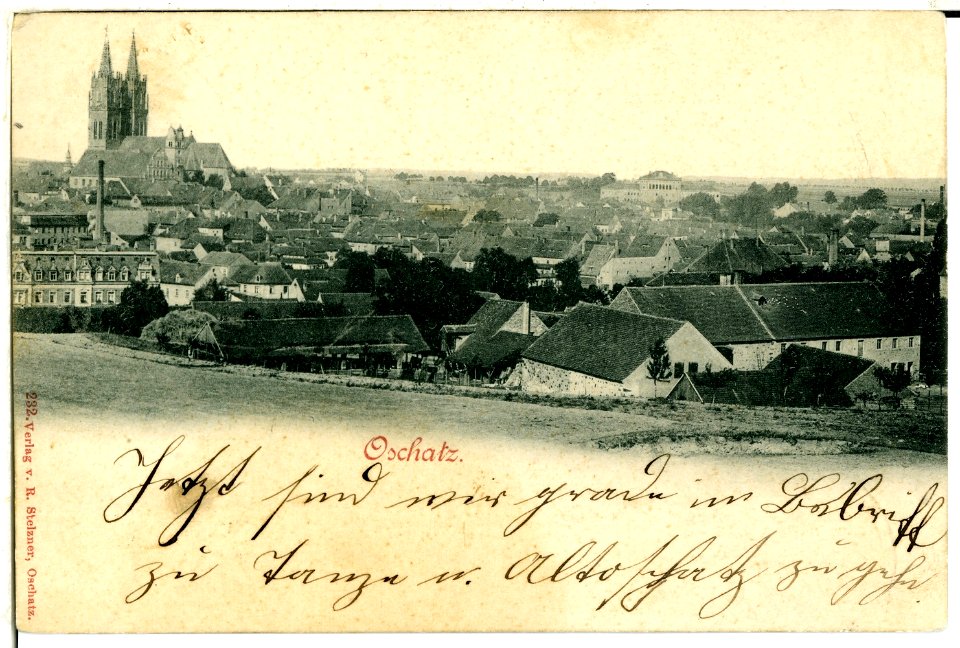 Oschatz.
Jetzt sind wir grade im Bebriff
zu Tanze n. Altoschatz zu gehn
232. Verlag v. R. Stelzner, Oschatz.